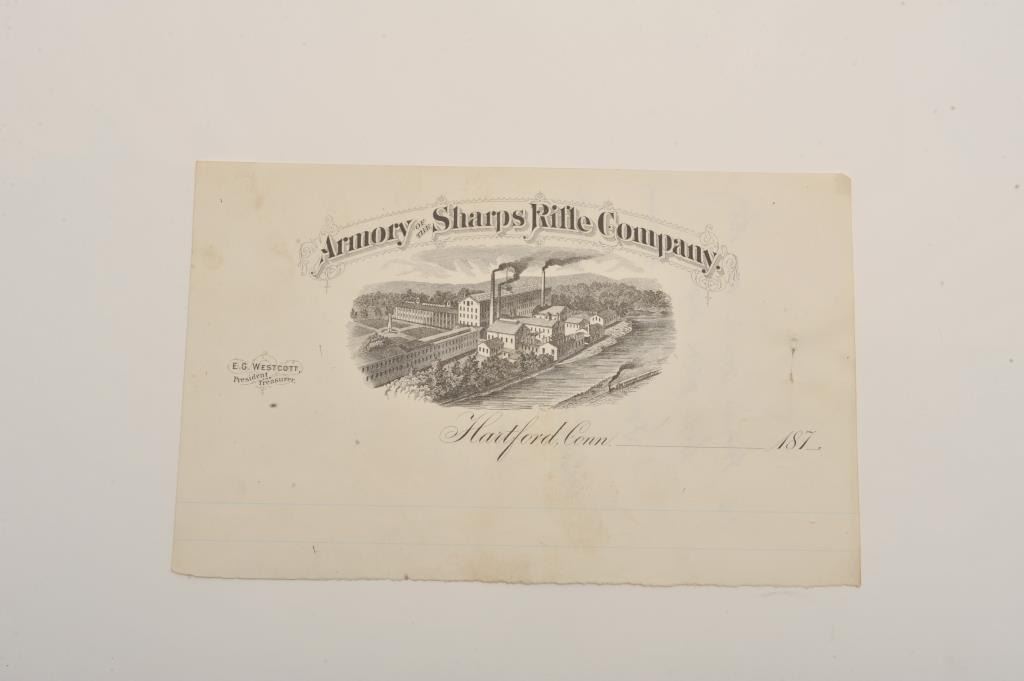 Armory OF THE Sharps Rifle Company.
E. G. WESTCOTT,
President.
Treasurer.
Hartford, Conn. 187